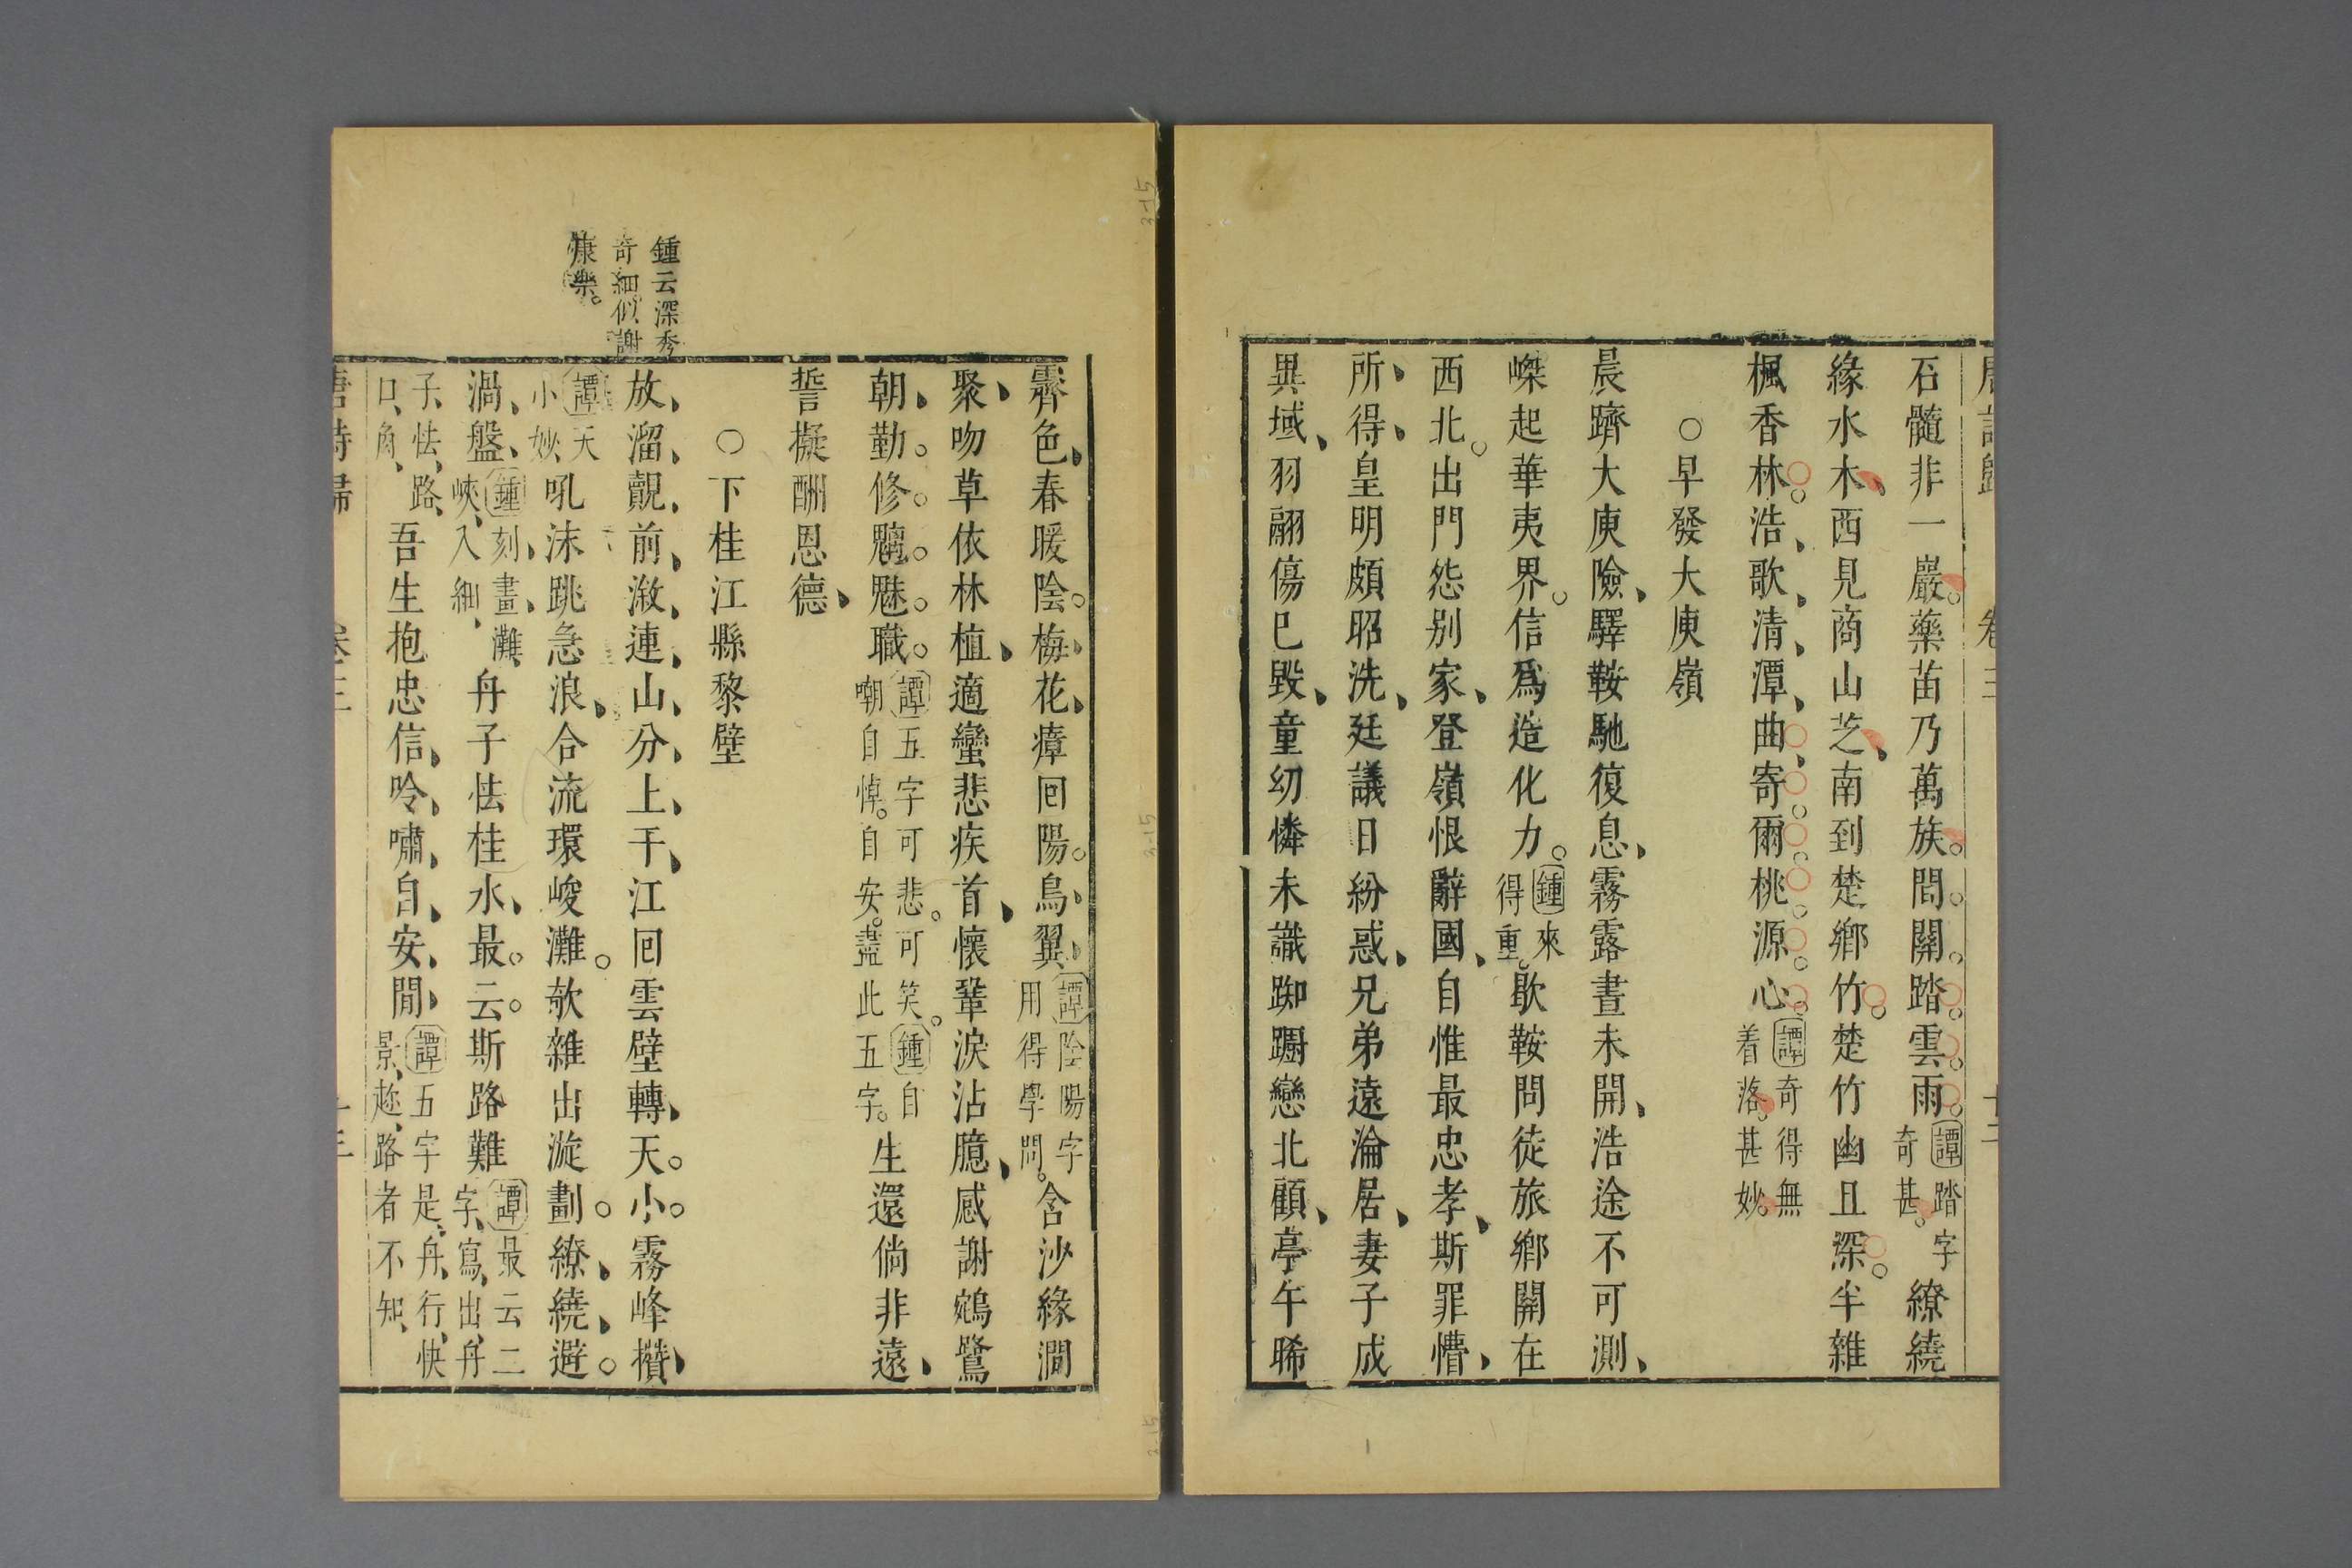 石髓非一巖藥苗乃萬族間關踏雲雨譚踏字奇甚繚繞
緣水木西見商山芝南到楚鄉竹楚竹幽且深半雜
楓香林浩歌清潭曲寄爾桃源心譚奇得無着落甚妙
○早發大庾嶺
晨躋大庾險驛鞍馳復息霧露晝未開浩途不可測
嵥起華夷界信爲造化力鍾來得重歇鞍問徒旅鄉關在
西北出門怨別家登嶺恨辭國自惟最忠孝斯罪懵
所得皇明頗昭洗廷議日紛惑兄弟遠淪居妻子成
異域羽翮傷已毀童幼憐未識踟躕戀北顧亭午晞
霽色春暖陰梅花瘴回陽鳥翼譚陰陽字用得學問含沙緣澗
聚吻草依林植適蠻悲疾首懷鞏淚沾臆感謝鵷鷺
朝勤修魑魅職譚五字可悲可笑鍾自嘲自悼自安盡此五字生還倘非遠
誓擬酬恩德
○下桂江縣黎壁
放溜覿前漵連山分上干江回雲壁轉天小霧峰攢
譚天小妙吼沫跳急浪合流環峻灘欹離出漩劃繚繞避
渦盤鍾刻畫灘峽入細舟子怯桂水最云斯路難譚最云二字寫出舟
子怯路口角吾生抱忠信吟嘯自安閒譚五字是舟行快景趂路者不知
鍾云深秀
奇細似謝
康樂
唐詩歸
卷三